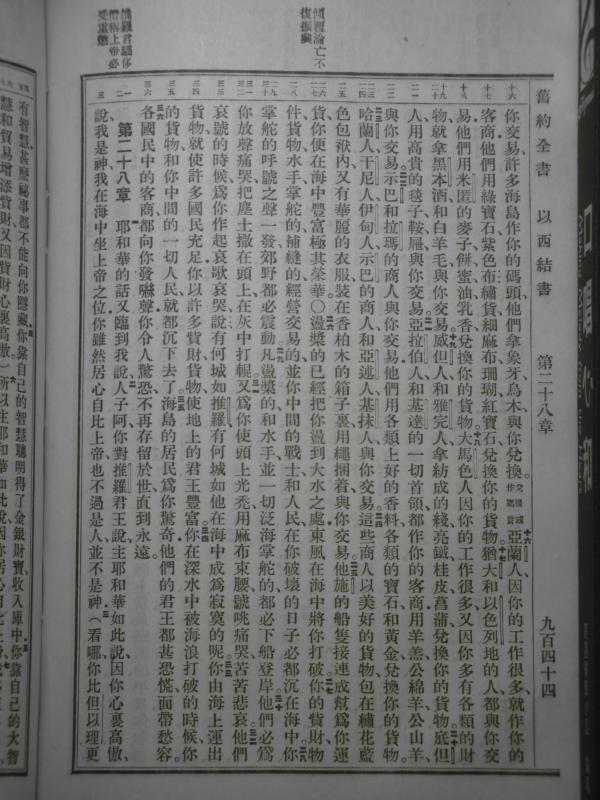 舊約全書　以西結書　第二十八章　九百四十四
你交易許多海島作你的碼頭他們拿象牙烏木與你兌換亞蘭人因你的工作很多就作你的
客商他們用綠寶石紫色布繡貨細麻布珊瑚紅寶石兌換你的貨物猶大和以色列地的人都與你交
易他們用米匿的麥子餅蜜油乳香兌換你的貨物大馬色人因你的工作很多又因你多有各類的財
物就拿黑本酒和白羊毛與你交易威但人和雅完人拿紡成的綫亮鐵桂皮菖蒲兌換你的貨物底但
人用高貴的毯子鞍屜與你交易亞拉伯人和基達的一切首領都作你的客商用羊羔公綿羊公山羊
與你交易示巴和拉瑪的商人與你交易他們用各類上好的香料各類的寶石和黃金兌換你的貨物
哈蘭人干尼人伊甸人示巴的商人和亞述人基抹人與你交易這些商人以美好的貨物包在繡花藍
色包袱內又有華麗的衣服裝在香柏木的箱子裏用繩捆着與你交易他施的船隻接連成幫爲你運
貨你便在海中豐富極其榮華○盪槳的已經把你盪到大水之處東風在海中將你打破你的貲財物
件貨物水手掌舵的補縫的經營交易的並你中間的戰士和人民在你破壞的日子必都沉在海中你
掌舵的呼號之聲一發郊野都必震動凡盪槳的和水手並一切泛海掌舵的都必下船登岸他們必爲
你放聲痛哭把塵土撒在頭上在灰中打輥又爲你使頭上光禿用麻布束腰號咷痛哭苦苦悲哀他們
哀號的時候爲你作起哀歌哀哭說有何城如推羅有何城如他在海中成爲寂寞的呢你由海上運出
貨物就使許多國民充足你以許多貲財貨物使地上的君王豐富你在深水中被海浪打破的時候你
的貨物和你中間的一切人民就都沉下去了海島的居民爲你驚奇他們的君王都甚恐慌面帶愁容
各國民中的客商都向你發嘶聲你令人驚恐不再存留於世直到永遠
第二十八章　耶和華的話又臨到我說人子阿你對推羅君王說主耶和華如此說因你心裏高傲
說我是神我在海中坐上帝之位你雖然居心自比上帝也不過是人並不是神（看哪你比但以理更
有智慧甚麽祕事都不能向你隱藏你靠自己的智慧聰明得了金銀財寶收入庫中你靠自己的大智
慧和貿易增添貲財又因貲財心裏高傲）所以主耶和華如此說因你居心自比上帝